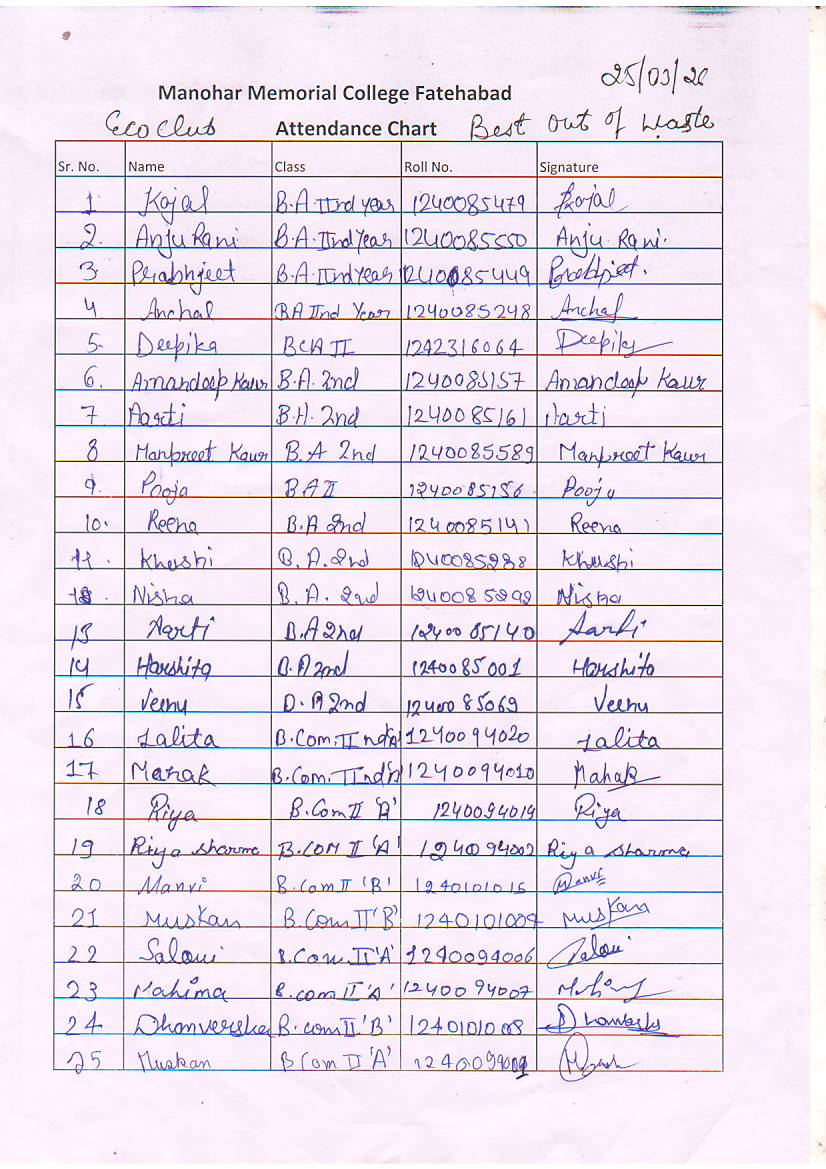 25/03/26
Manohar Memorial College Fatehabad
Eco Club Attendance Chart Best out of Waste
Sr. No. Name Class Roll No. Signature
1 Kajal B.A IInd year 1240085479 Kajal
2. Anju Rani B.A IInd Year 1240085550 Anju Rani.
3. Prabhjeet B.A IInd year 1240085449
4 Anchal BA IInd Year 1240085248 Anchal
5. Deepika BCA II 1242316064 Deepika
6. Amandeep Kaur B.A. 2nd 1240085157 Amandeep Kaur
7 Aarti B.A. 2nd 1240085161 Aarti
8 Manpreet Kaur B.A 2nd 1240085589 Manpreet Kaur
9. Pooja BA II 1240085156. Pooja
10. Reena B.A 2nd 1240085141 Reena
11. Khushi B.A. 2nd 1240085238 Khushi
Nisha B.A. 2nd 1240085292 Nisha
13 Aarti B.A 2nd 1240085140 Aarti
14 Harshita B.A 2nd 1240085001 Harshita
15 Veenu B.A 2nd 1240085069 Veenu
16 Lalita B.Com. IInd 'A' 1240094020 Lalita
17 Mahak B.Com. IInd 'A' 1240094010 Mahak
18 Riya B.Com II 1240094019 Riya
19 Riya Sharma B.COM II 'A' 1240094002 Riya Sharma
20 Manvi B.Com II 'B' 1240101015 Manvi
21 Muskan B.Com II 'B' 1240101009 Muskan
22 Saloni B.Com. II 'A' 1240094006 Saloni
23 Mahima B.com II 'A' 1240094007
24 Dhanversha B.com II 'B' 1240101008
25 Muskan B Com II 'A'